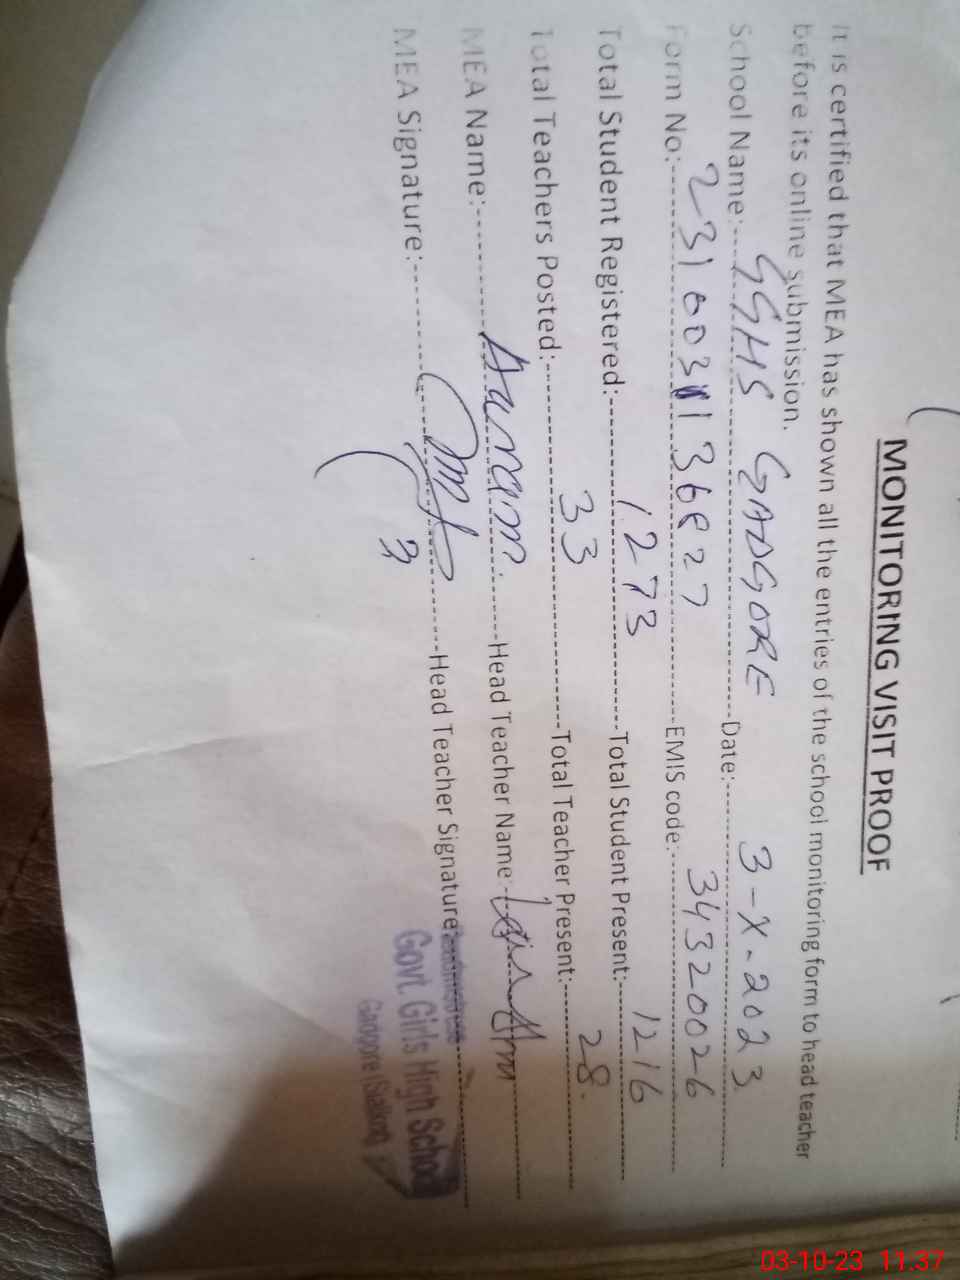 MONITORING VISIT PROOF
It is certified that MEA has shown all the entries of the school monitoring form to head teacher
before its online submission.
School Name: GGHS GADGORE Date: 3-X-2023
Form No: EMIS code: 34320026
Total Student Registered: 1273 Total Student Present: 1216
Total Teachers Posted: 33 Total Teacher Present: 28
MEA Name: Head Teacher Name:
MEA Signature: Head Teacher Signature:
Govt. Girls High School
Gadgore (Sialkot)
03-10-23 11:37